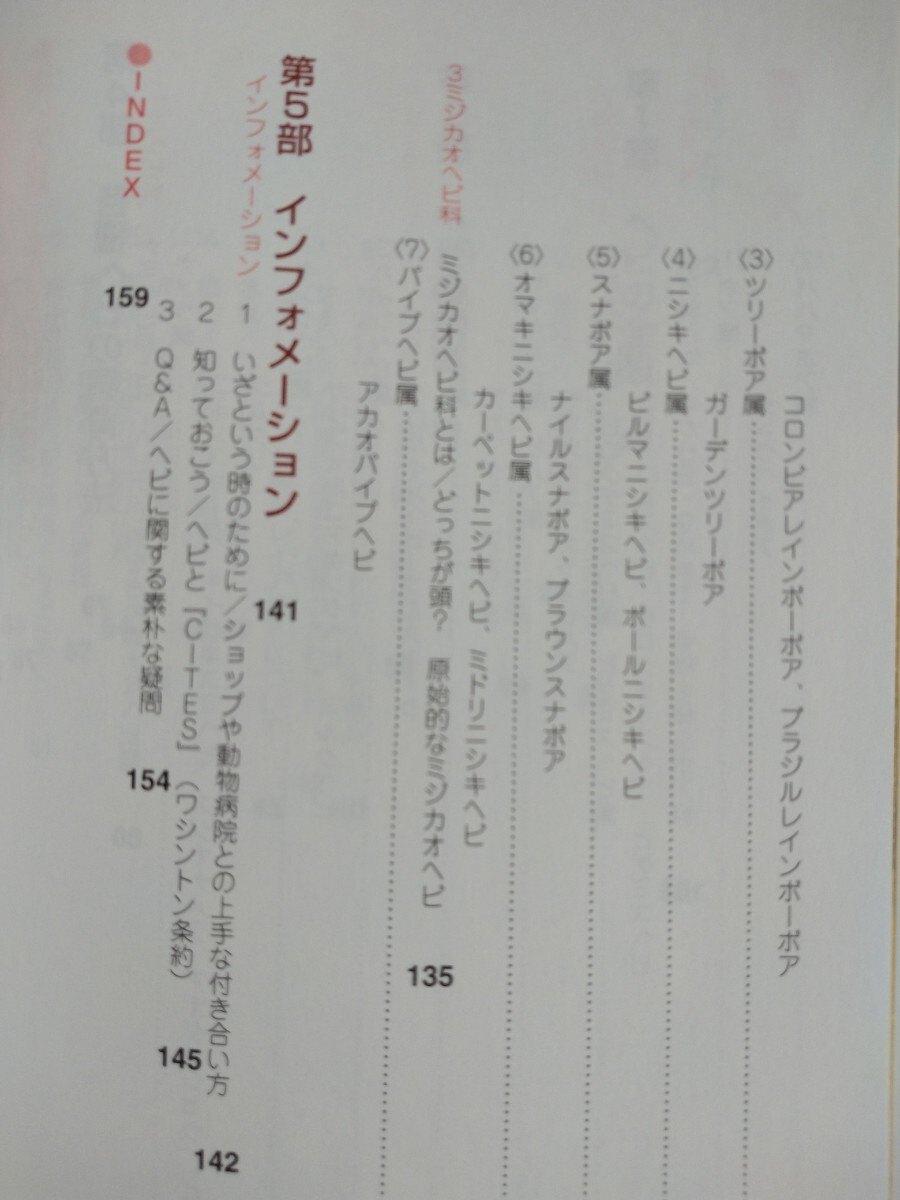 コロンビアレインボーボア、ブラジルレインボーボア
〈3〉ツリーボア属
ガーデンツリーボア
〈4〉ニシキヘビ属
ビルマニシキヘビ、ボールニシキヘビ
〈5〉スナボア属
ナイルスナボア、ブラウンスナボア
〈6〉オマキニシキヘビ属
カーペットニシキヘビ、ミドリニシキヘビ
3ミジカオヘビ科
ミジカオヘビ科とは/どっちが頭? 原始的なミジカオヘビ 135
〈7〉パイプヘビ属
アカオパイプヘビ
第5部 インフォメーション 141
インフォメーション
1 いざという時のために/ショップや動物病院との上手な付き合い方 142
2 知っておこう/ヘビと『CITES』(ワシントン条約) 145
3 Q&A/ヘビに関する素朴な疑問 154
●INDEX 159